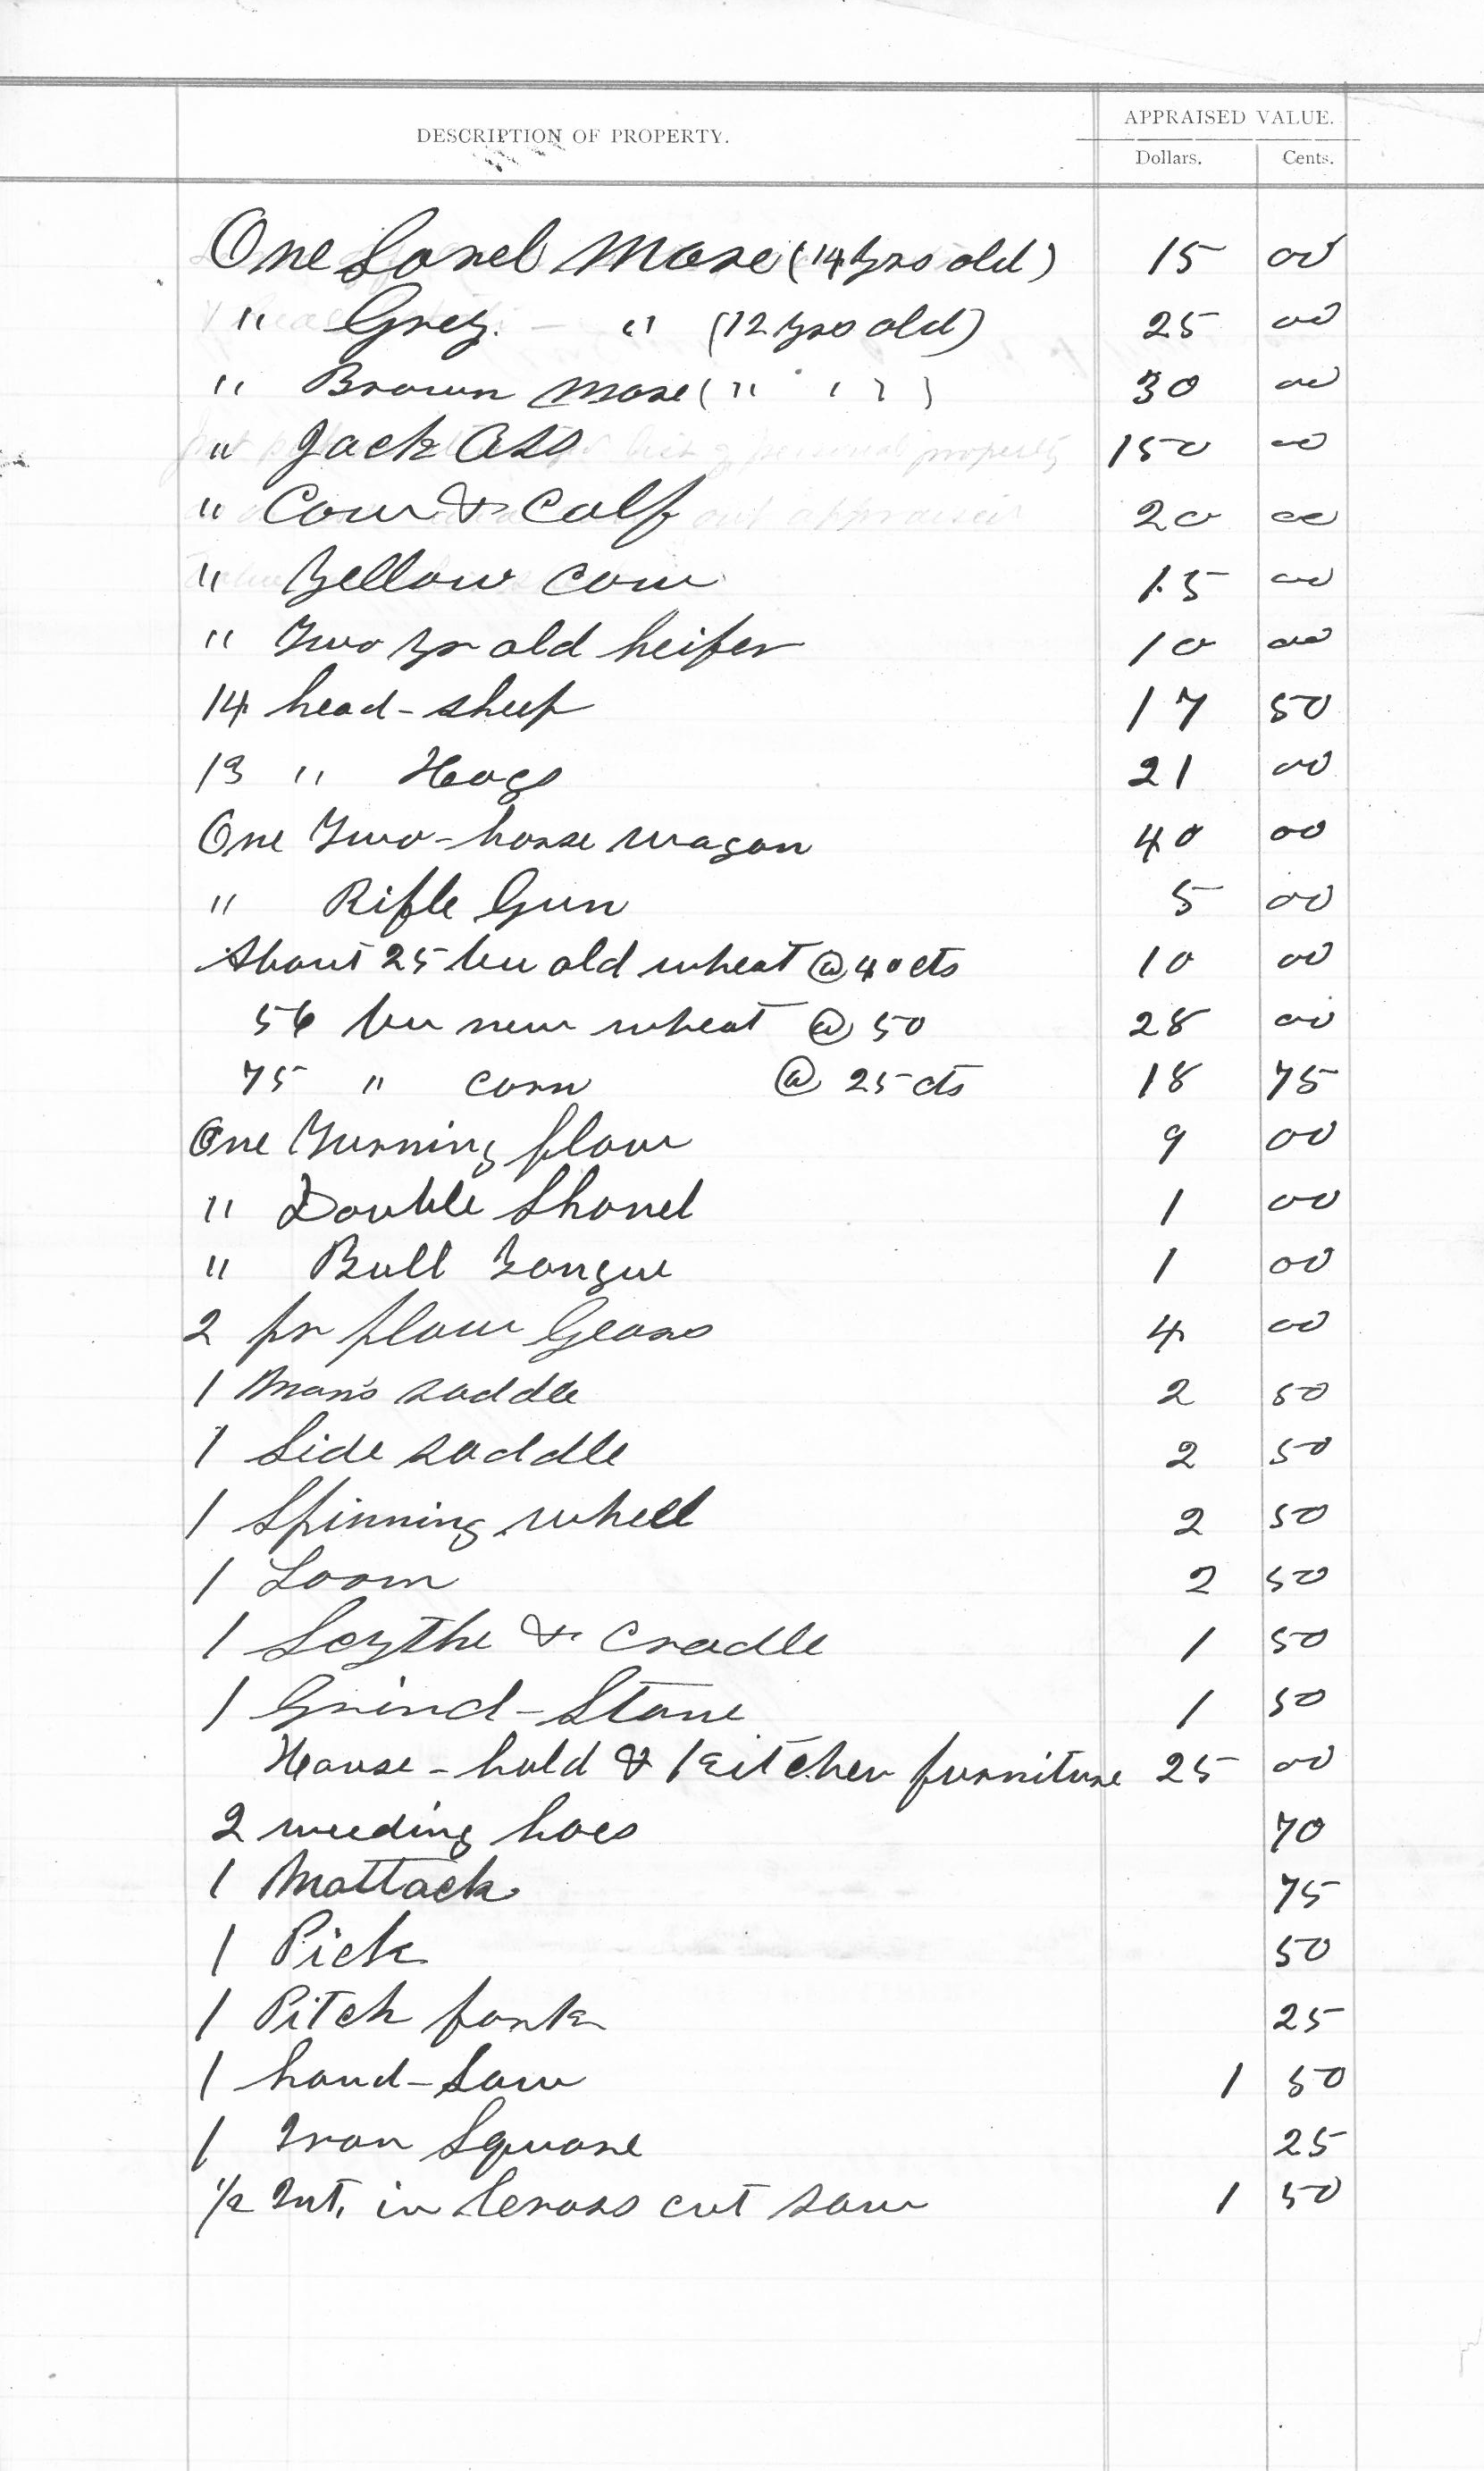 DESCRIPTION OF PROPERTY. APPRAISED VALUE.
Dollars. Cents.
One Sorrel Mare (14 yrs old) 15 00
" Grey. - " (12 yrs old) 25 00
" Brown Mare ( " " ) 30 00
" Jack Ass 150 00
" Cow & Calf 20 00
" Yellow Cow 15 00
" Two yr old heifer 10 00
14 head - sheep 17 50
13 " Hogs 21 00
One Two-horse wagon 40 00
" Rifle Gun 5 00
About 25 bu old wheat @ 40 cts 10 00
56 bu new wheat @ 50 28 00
75 " corn @ 25 cts 18 75
One Turning plow 9 00
" Double Shovel 1 00
" Bull Tongue 1 00
2 pr plow Gears 4 00
1 Man's saddle 2 50
1 Side saddle 2 50
1 Spinning wheel 2 50
1 Loom 2 50
1 Scythe & Cradle 1 50
1 Grind-Stone 1 50
House-hold & Kitchen furniture 25 00
2 weeding hoes 70
1 Mattock 75
1 Pick 50
1 Pitch fork 25
1 hand-Saw 1 50
1 Iron Square 25
1/2 Int. in Cross cut saw 1 50